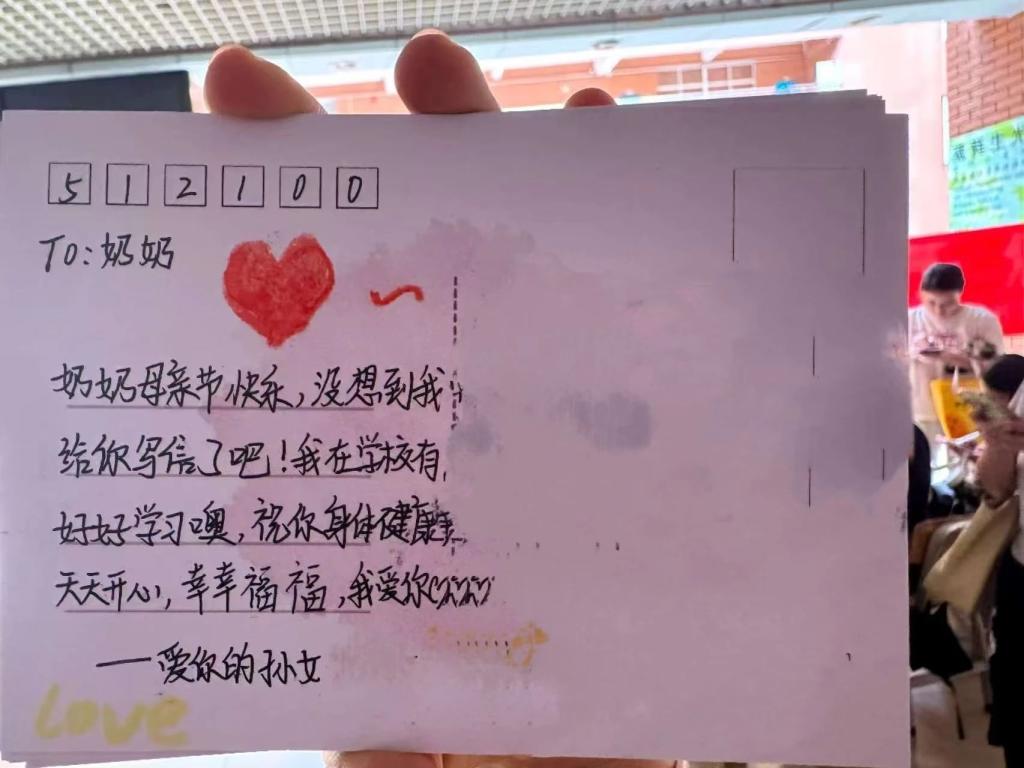 512100
TO:奶奶
奶奶母亲节快乐,没想到我
给你写信了吧!我在学校有
好好学习噢,祝你身体健康
天天开心,幸幸福福,我爱你
——爱你的孙女
Love